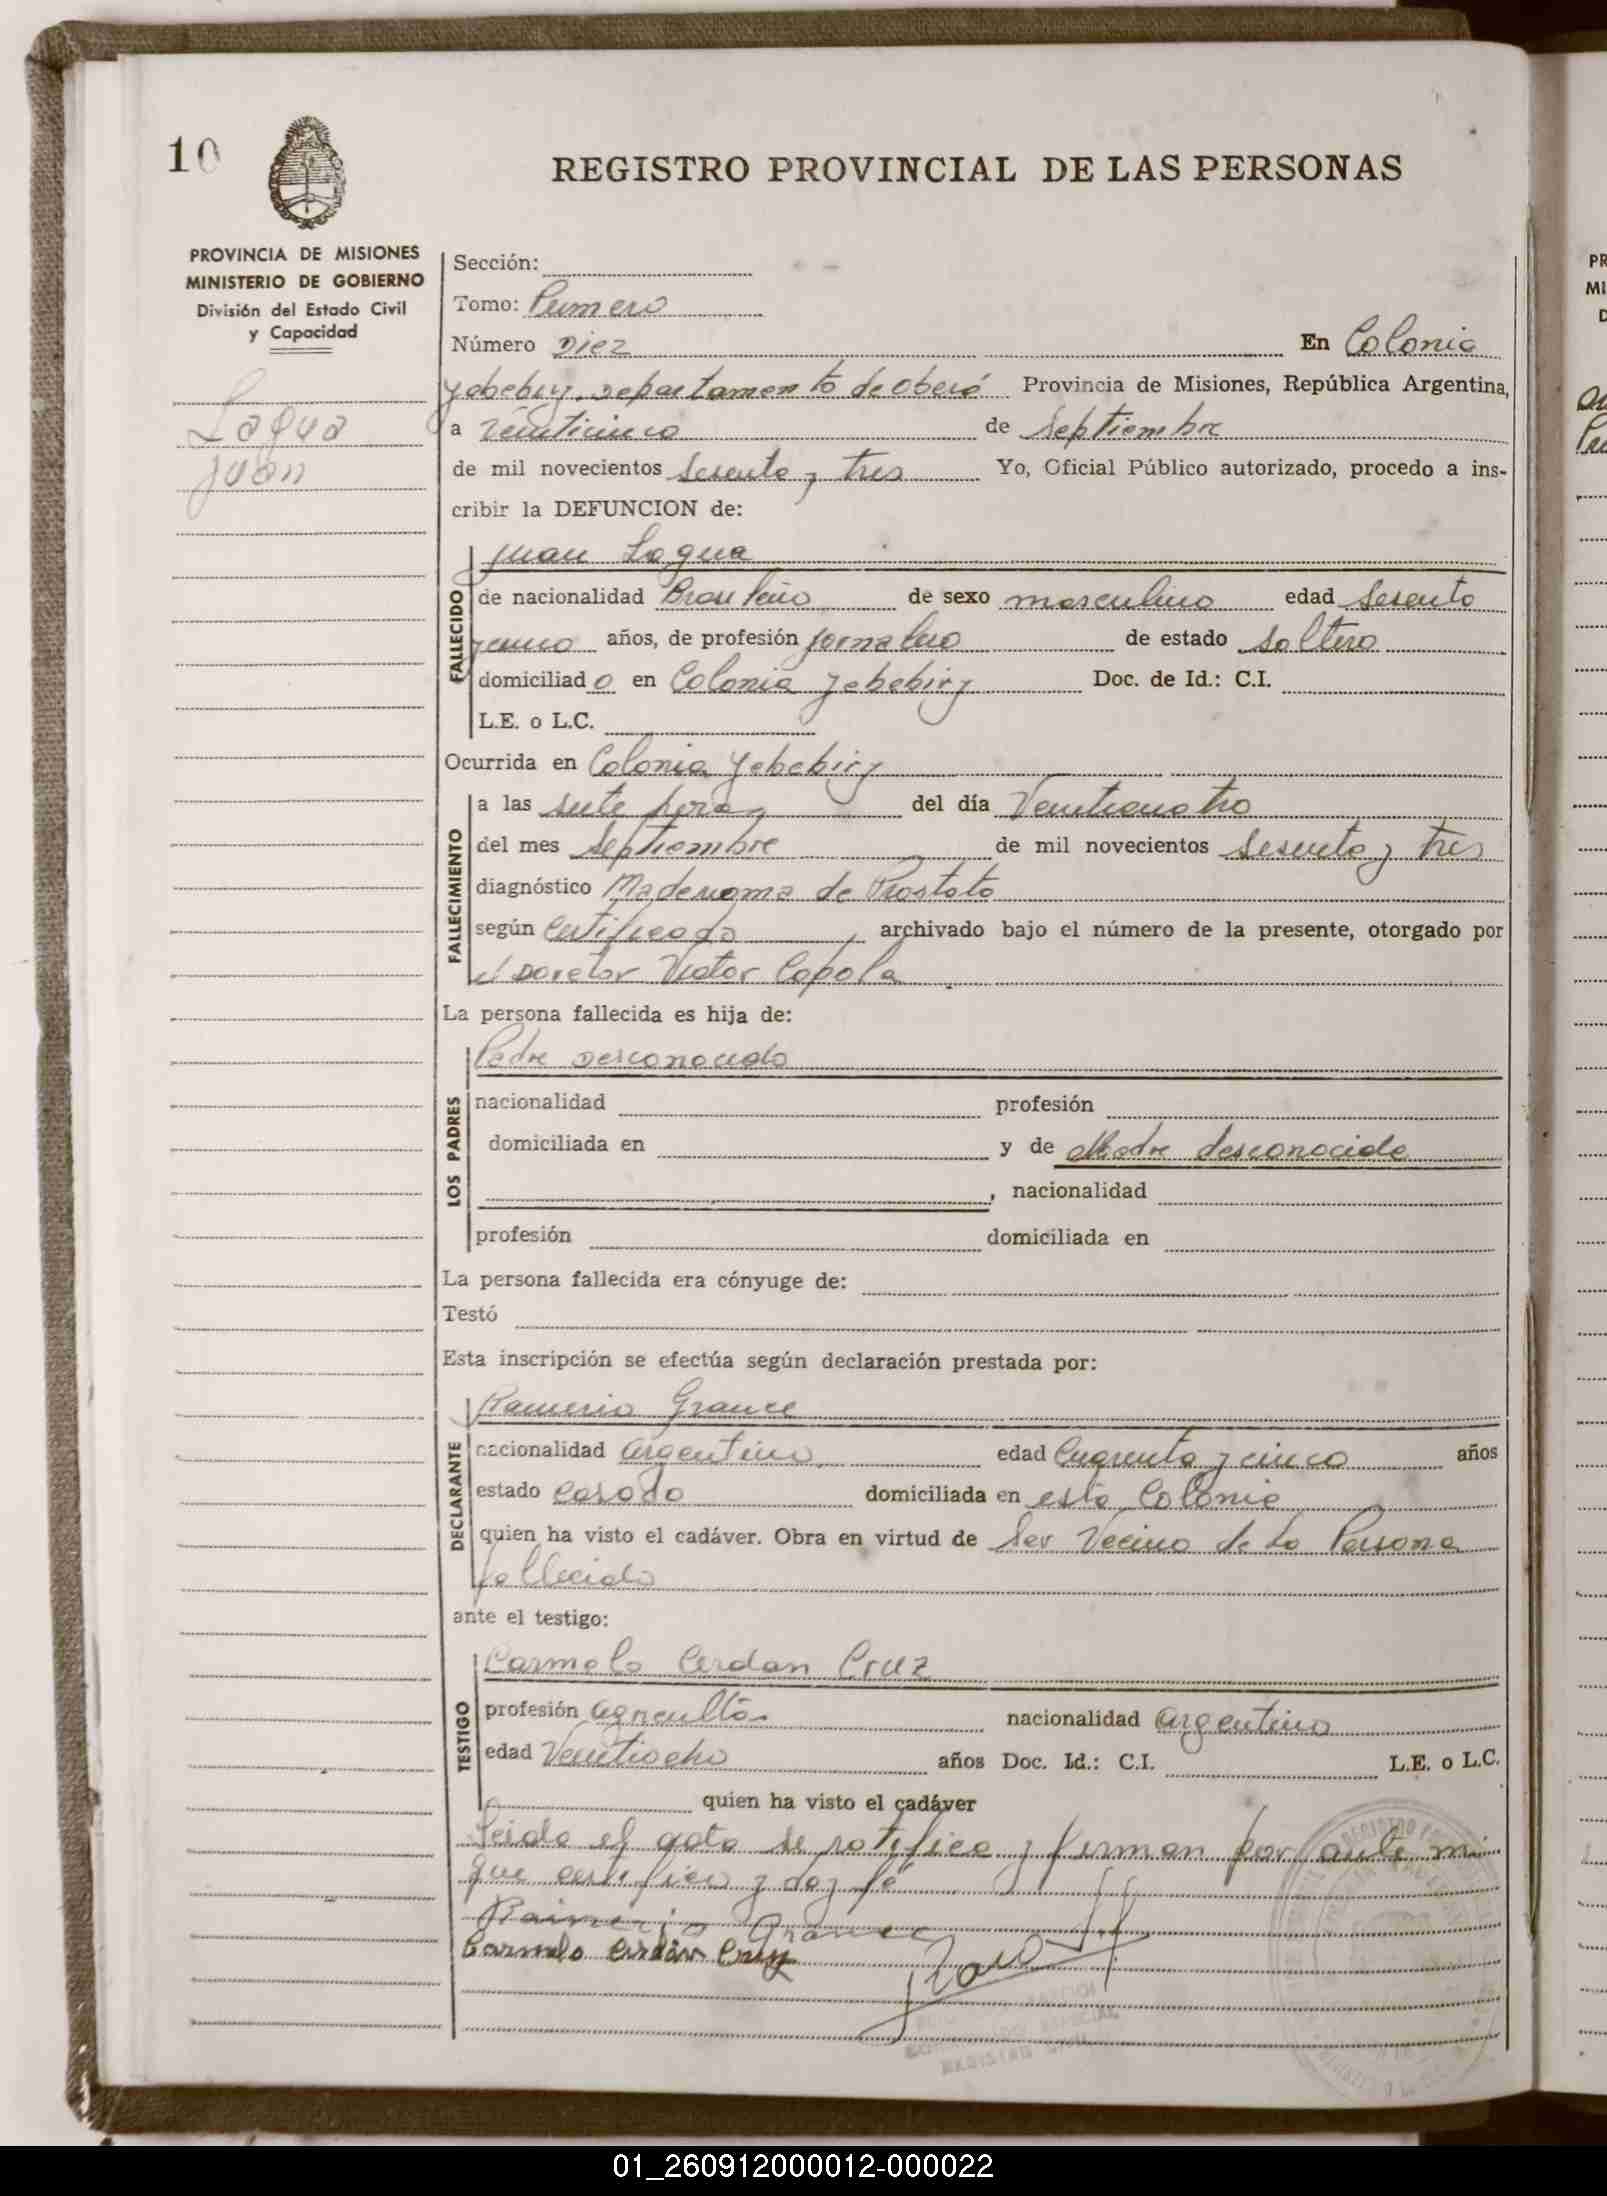 10
REGISTRO PROVINCIAL DE LAS PERSONAS
PROVINCIA DE MISIONES
MINISTERIO DE GOBIERNO
División del Estado Civil
y Capacidad
Lagua
Juan
Sección:
Tomo: Primero
Número Diez En Colonia
Yebebiry, Departamento de Oberá Provincia de Misiones, República Argentina,
a Veinticinco de Septiembre
de mil novecientos Sesenta y tres Yo, Oficial Público autorizado, procedo a ins-
cribir la DEFUNCION de:
Juan Lagua
FALLECIDO
de nacionalidad Brasileño de sexo masculino edad Sesenta
y cinco años, de profesión Jornalero de estado Soltero
domiciliado en Colonia Yebebiry Doc. de Id.: C.I.
L.E. o L.C.
Ocurrida en Colonia Yebebiry
FALLECIMIENTO
a las siete horas del día Veinticuatro
del mes Septiembre de mil novecientos Sesenta y tres
diagnóstico de Prostata
según Certificado, archivado bajo el número de la presente, otorgado por
el Doctor Victor Copola
La persona fallecida es hija de:
Padre Desconocido
LOS PADRES
nacionalidad profesión
domiciliada en y de Madre desconocida
, nacionalidad
profesión domiciliada en
La persona fallecida era cónyuge de:
Testó
Esta inscripción se efectúa según declaración prestada por:
Ramerio Grance
DECLARANTE
nacionalidad argentino edad Cuarenta y cinco años
estado Casado domiciliada en esta Colonia
quien ha visto el cadáver. Obra en virtud de Ser Vecino de la Persona
fallecida
ante el testigo:
Carmelo Cerdan Cruz
TESTIGO
profesión agricultor nacionalidad argentino
edad Veintiocho años Doc. Id.: C.I. L.E. o L.C.
quien ha visto el cadáver
Leida el acta se ratifica y firman por ante mi
que certifico y doy fé
Rainerio Grance
Carmelo Cerdán Cruz
REGISTRO CIVIL
01_260912000012-000022